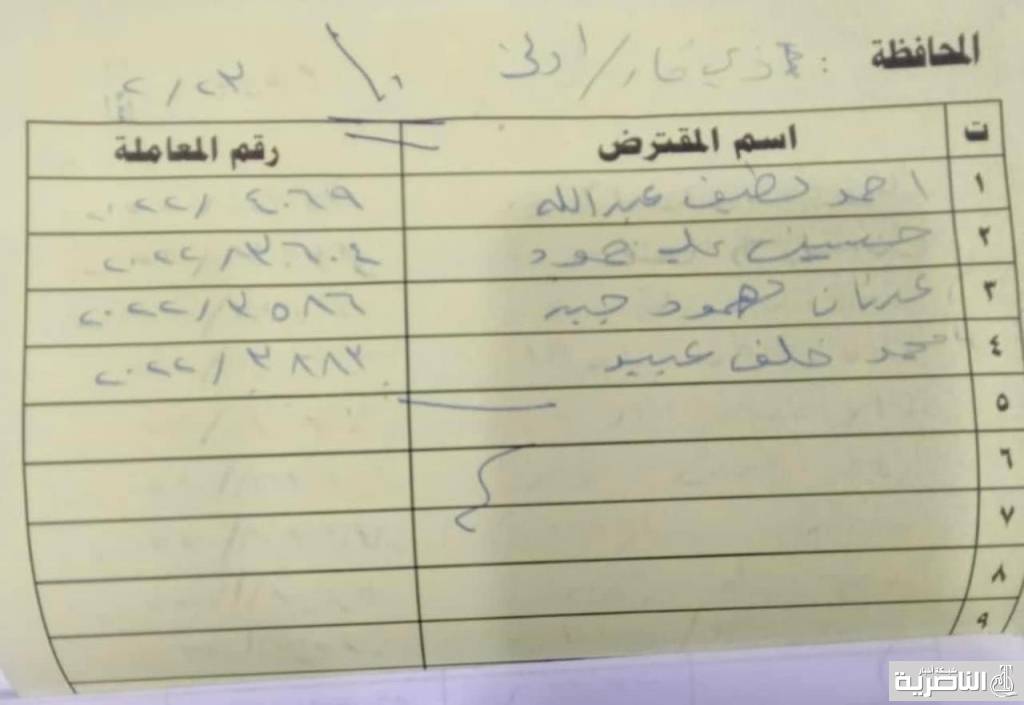 المحافظة : ذي قار / اولى
٢ / ٢٣
ت اسم المقترض رقم المعاملة
١ احمد لطيف عبدالله ٤٠٦٩ / ٢٠٢٢
٢ حسين علي حمود ٣٦٠٤ / ٢٠٢٢
٣ عدنان حمود جبر ٣٥٨٦ / ٢٠٢٢
٤ محمد خلف عبيد ٣٨٨٣ / ٢٠٢٢
٥
٦
٧
٨
٩
شبكة اخبار
الناصرية